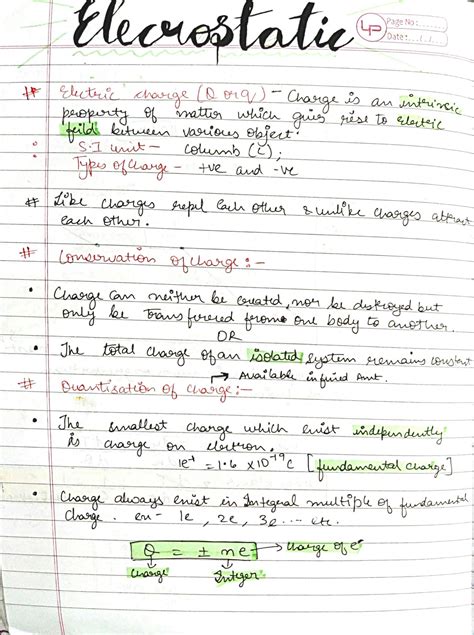 Elecrostatic
LP
Page No:
Date:
# Electric charge (Q or q) - Charge is an intrinsic
property of matter which gives rise to electric
feild between various object.
S.I unit - columb (C);
Types of charge - +ve and -ve
# Like charges repel each other & unlike charges attract
each other.
# Conservation of charge :-
• Charge can neither be created, nor be destroyed but
only be transferred from one body to another.
OR
• The total charge of an isolated system remains constant
# Quantisation of charge:- → Available in fixed Amt.
• The smallest charge which exist independently
is charge on electron.
1e⁻ = 1.6 × 10⁻¹⁹ C [fundamental charge]
• Charge always exist in Integral multiple of fundamental
charge. en- 1e, 2e, 3e ... etc.
Q = ± ne → charge of e⁻
charge Integer